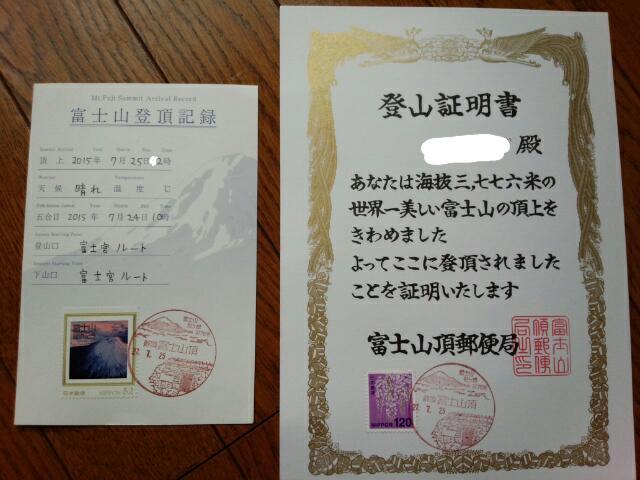 Mt.Fuji Summit Arrival Record
富士山登頂記録
頂上 2015年 7月 25日 2時
天候 晴れ 温度 ℃
五合目 2015年 7月 24日 10時
登山口 富士宮ルート
下山口 富士宮ルート
日本郵便 NIPPON 52
富士山頂
27. 7. 25
登山証明書
殿
あなたは海抜三,七七六米の
世界一美しい富士山の頂上を
きわめました
よってここに登頂されました
ことを証明いたします
富士山頂郵便局
富士山
頂郵便
局之印
日本郵便
NIPPON 120
富士山頂
27. 7. 25